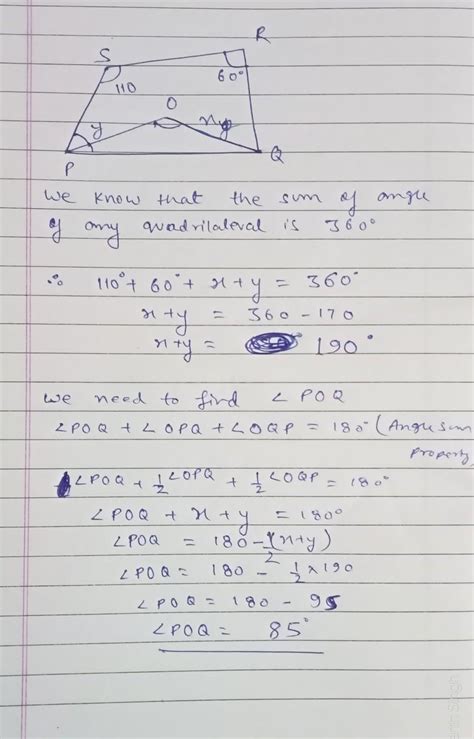 R
S
110
60°
O
y
x
P
Q
We know that the sum of angle
of any quadrilateral is 360°
∴ 110° + 60° + x + y = 360°
x + y = 360 - 170
x + y = 190°
We need to find ∠POQ
∠POQ + ∠OPQ + ∠OQP = 180° (Angle sum
property
∠POQ + 1/2 ∠OPQ + 1/2 ∠OQP = 180°
∠POQ + x + y = 180°
∠POQ = 180 - 1/2 (x+y)
∠POQ = 180 - 1/2 × 190
∠POQ = 180 - 95
∠POQ = 85°
Singh